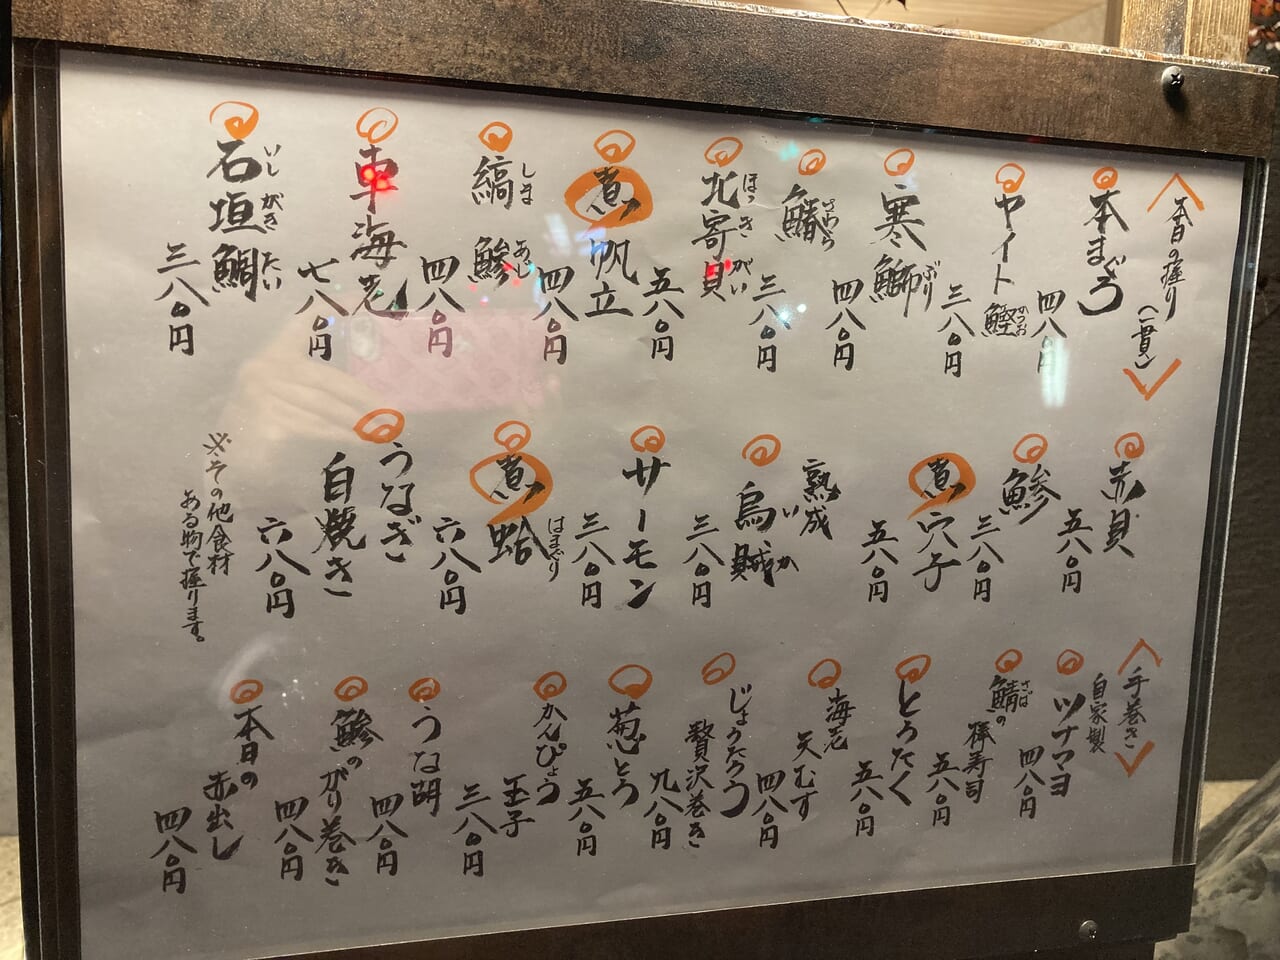 本日の握り(一貫)
本まぐろ
四八〇円
ヤイト鰹 かつお
三八〇円
寒鰤 ぶり
四八〇円
鰆 さわら
三八〇円
北寄貝 ほっきがい
五八〇円
煮帆立
四八〇円
縞鯵 しまあじ
四八〇円
車海老
七八〇円
石垣鯛 いしがきたい
三八〇円
赤貝
五八〇円
鯵
三八〇円
煮穴子
五八〇円
熟成
烏賊 いか
三八〇円
サーモン
三八〇円
煮蛤 はまぐり
六八〇円
うなぎ
白焼き
六八〇円
※その他食材
ある物で握ります。
手巻き
自家製
ツナマヨ
四八〇円
鯖の さば
棒寿司
五八〇円
とろたく
五八〇円
海老
天むす
四八〇円
じょうたろう
贅沢巻き
九八〇円
葱とろ
五八〇円
かんぴょう
玉子
三八〇円
うな胡
四八〇円
鯵の
がり巻き
四八〇円
本日の
赤出し
四八〇円